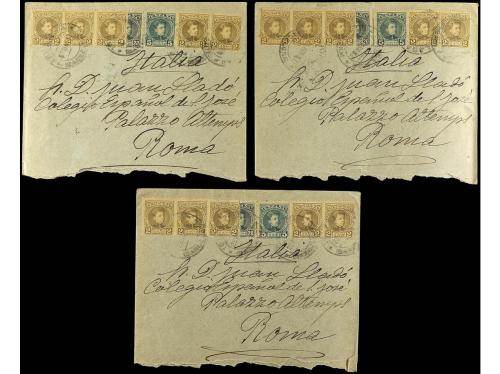 Italia
h. D. Juan Lladó
Colegio Español de S. José
Palazzo Altemps
Roma
Italia
h. D. Juan Lladó
Colegio Español de S. José
Palazzo Altemps
Roma
Italia
h. D. Juan Lladó
Colegio Español de S. José
Palazzo Altemps
Roma